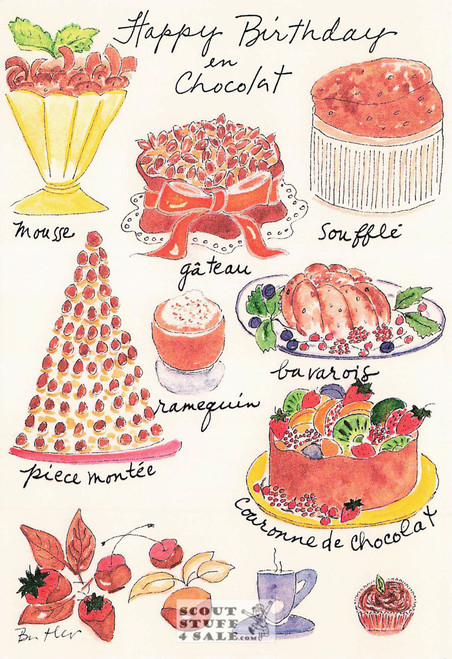 Happy Birthday
en
Chocolat
mousse
gâteau
soufflé
piece montée
ramequin
bavarois
couronne de chocolat
Butler
SCOUT
STUFF
4 SALE.com